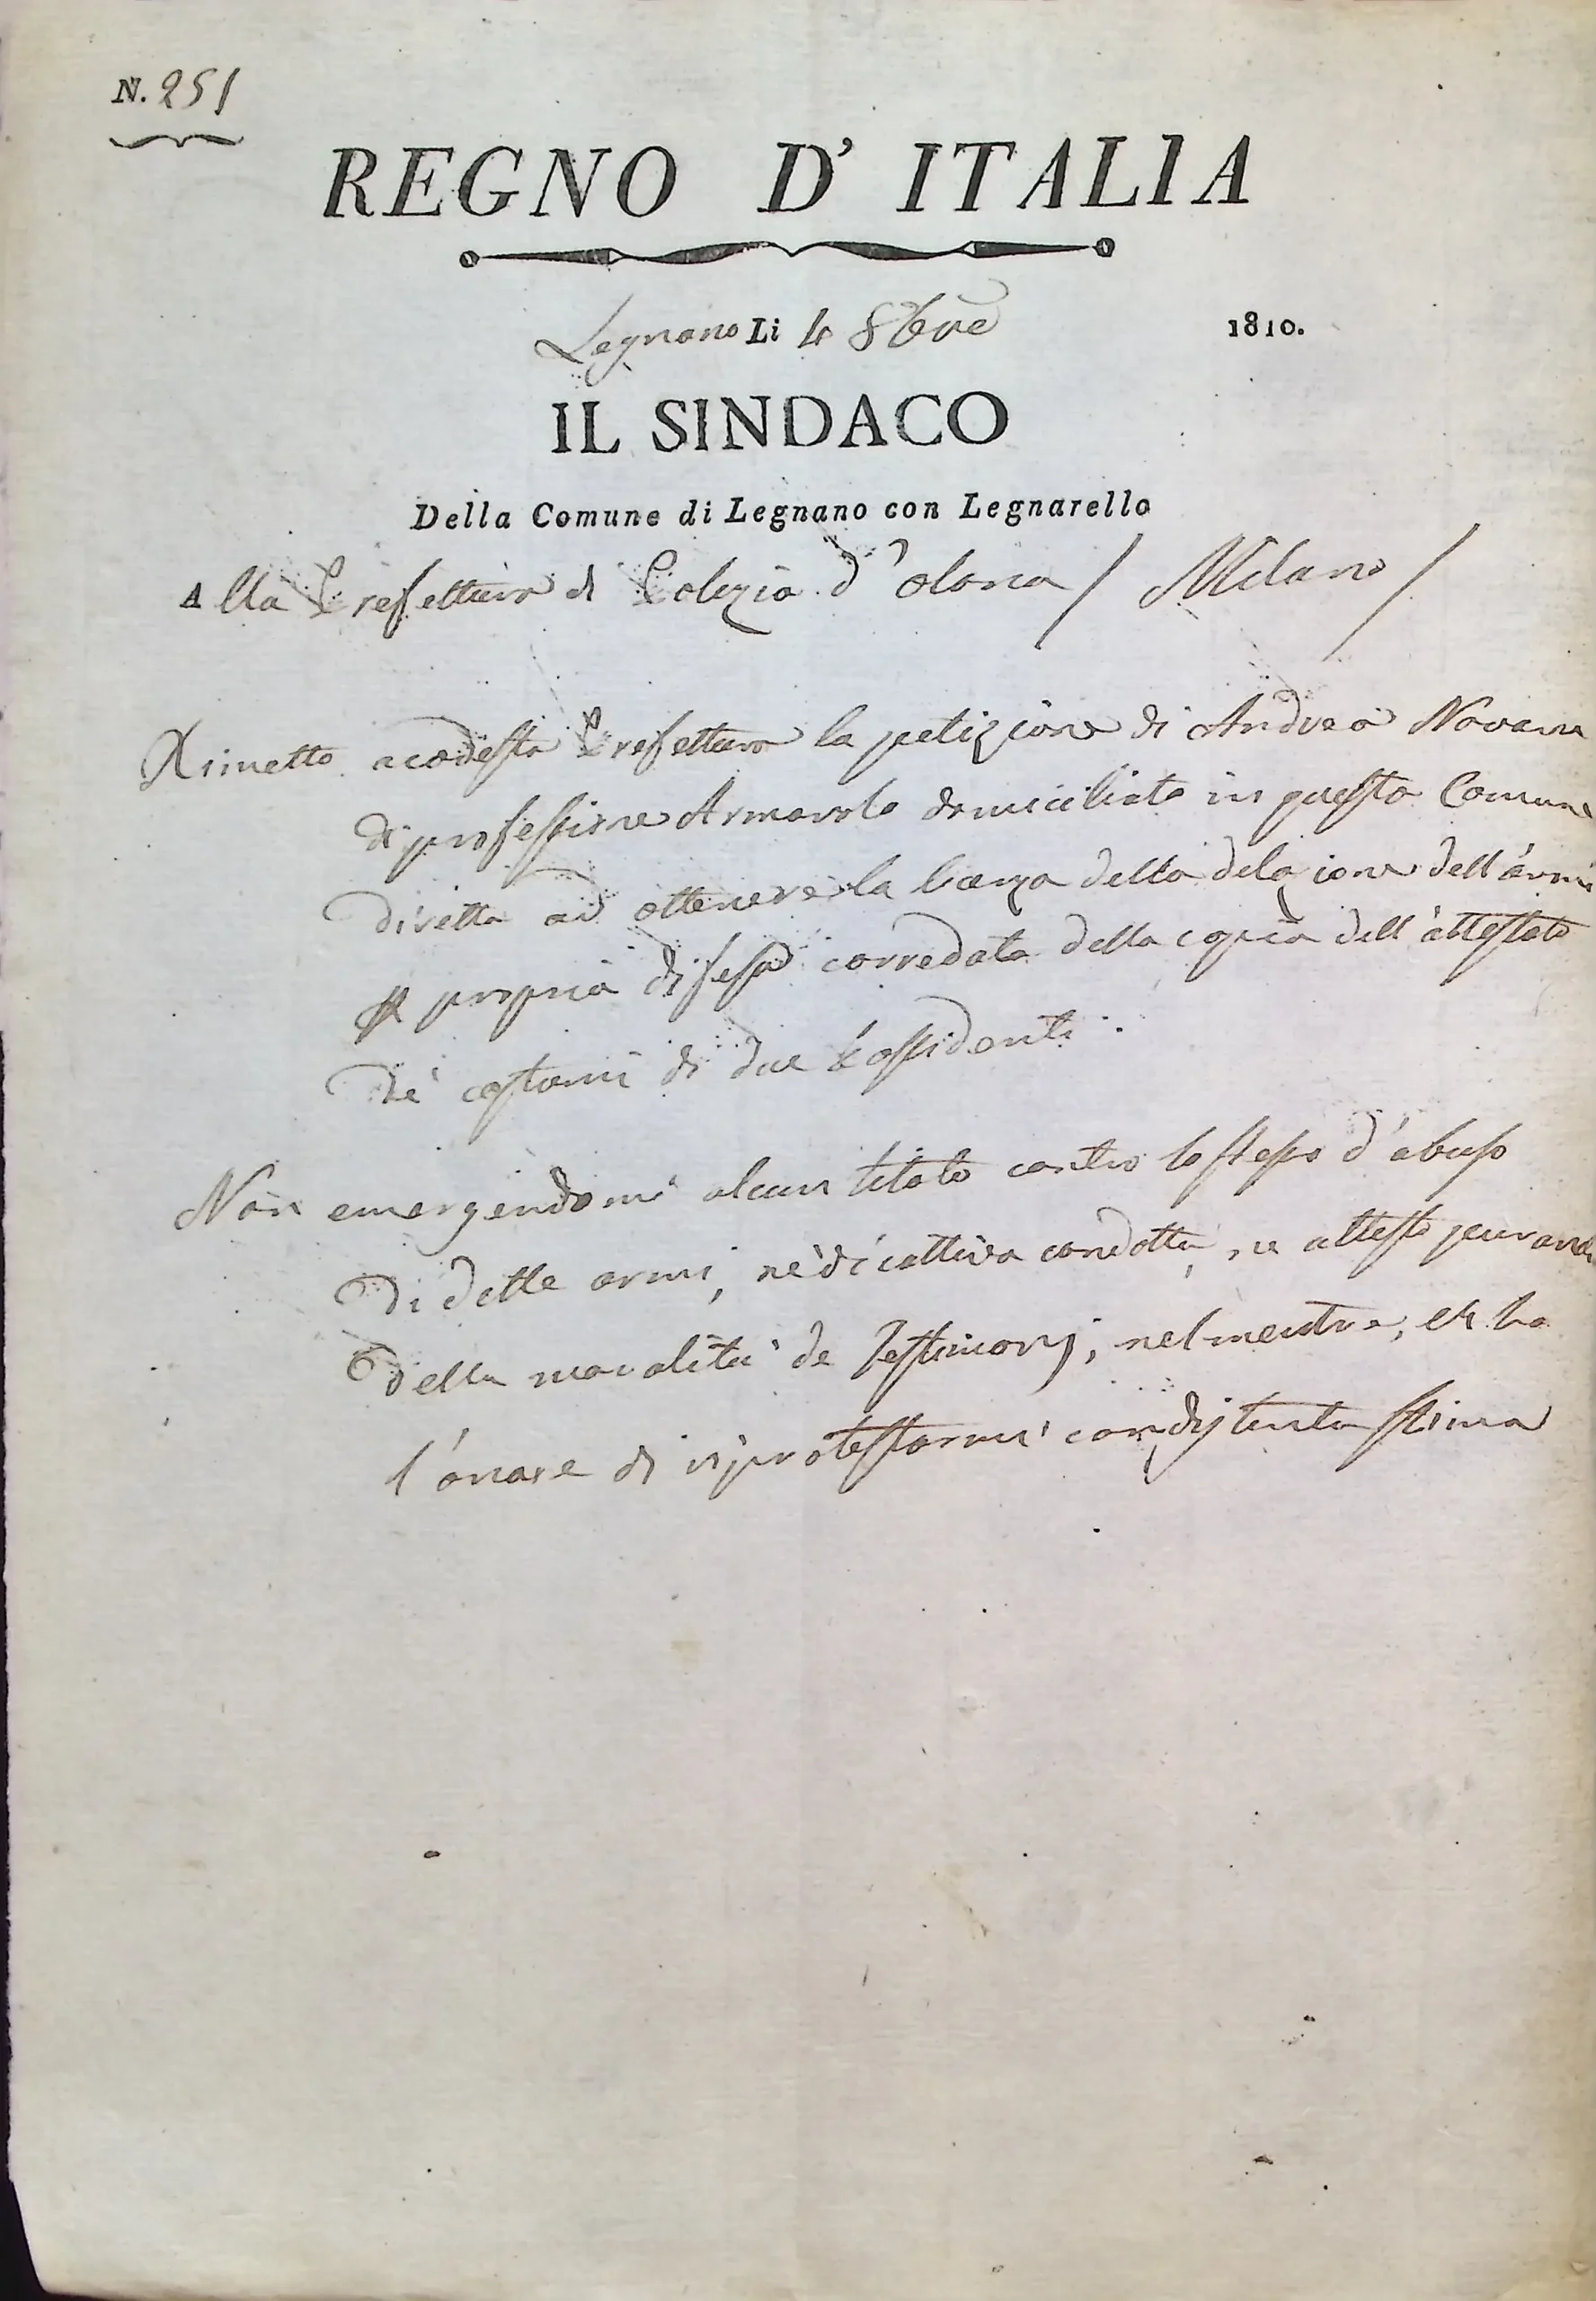 N. 251
REGNO D' ITALIA
Legnano Li 4 8bre 1810.
IL SINDACO
Della Comune di Legnano con Legnarello
Alla Prefettura di Polizia d'olona / Milano /
Rimetto a codesta Prefettura la petizione di Andrea Novara
di professione Armarolo domiciliato in questa Comune
diretta ad ottenere la licenza della delazione dell'armi
propria difesa corredata della copia dell'attestato
de' costumi di due Possidenti.
Non emergendomi alcun titolo contro lo stesso d'abuso
di dette armi, nè di cattiva condotta,
della moralità de Testimonj, nel mentre, ch ho
l'onore di riprotestarmi con distinta stima